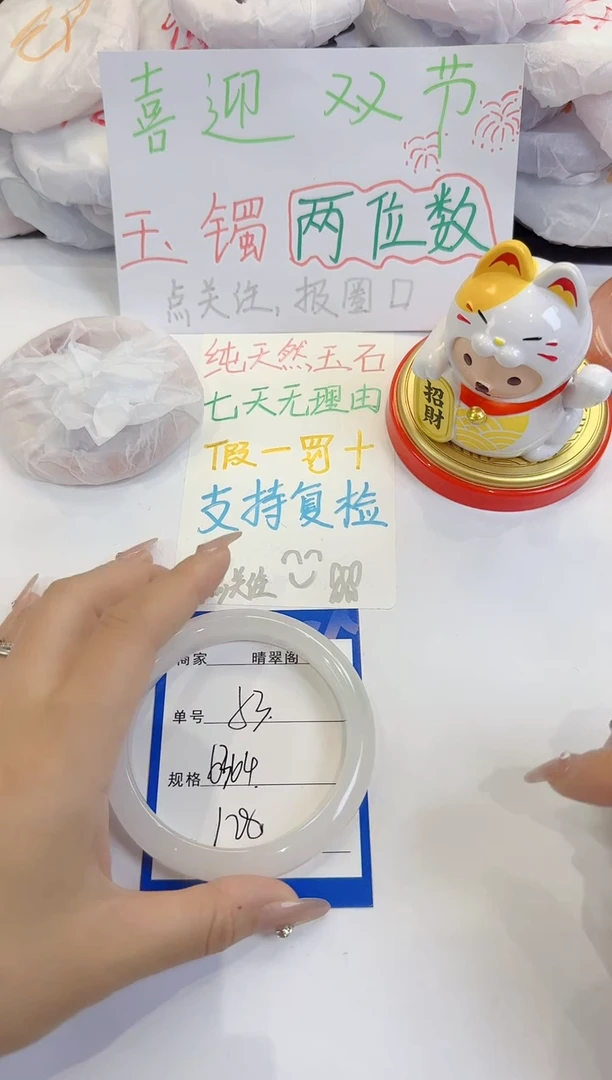 喜迎 双节
玉镯 两位数
点关注, 报圈口
纯天然玉石
七天无理由
假一罚十
支持复检
点关注
招財
商家 晴翠阁
单号 83.
规格 6364.
128